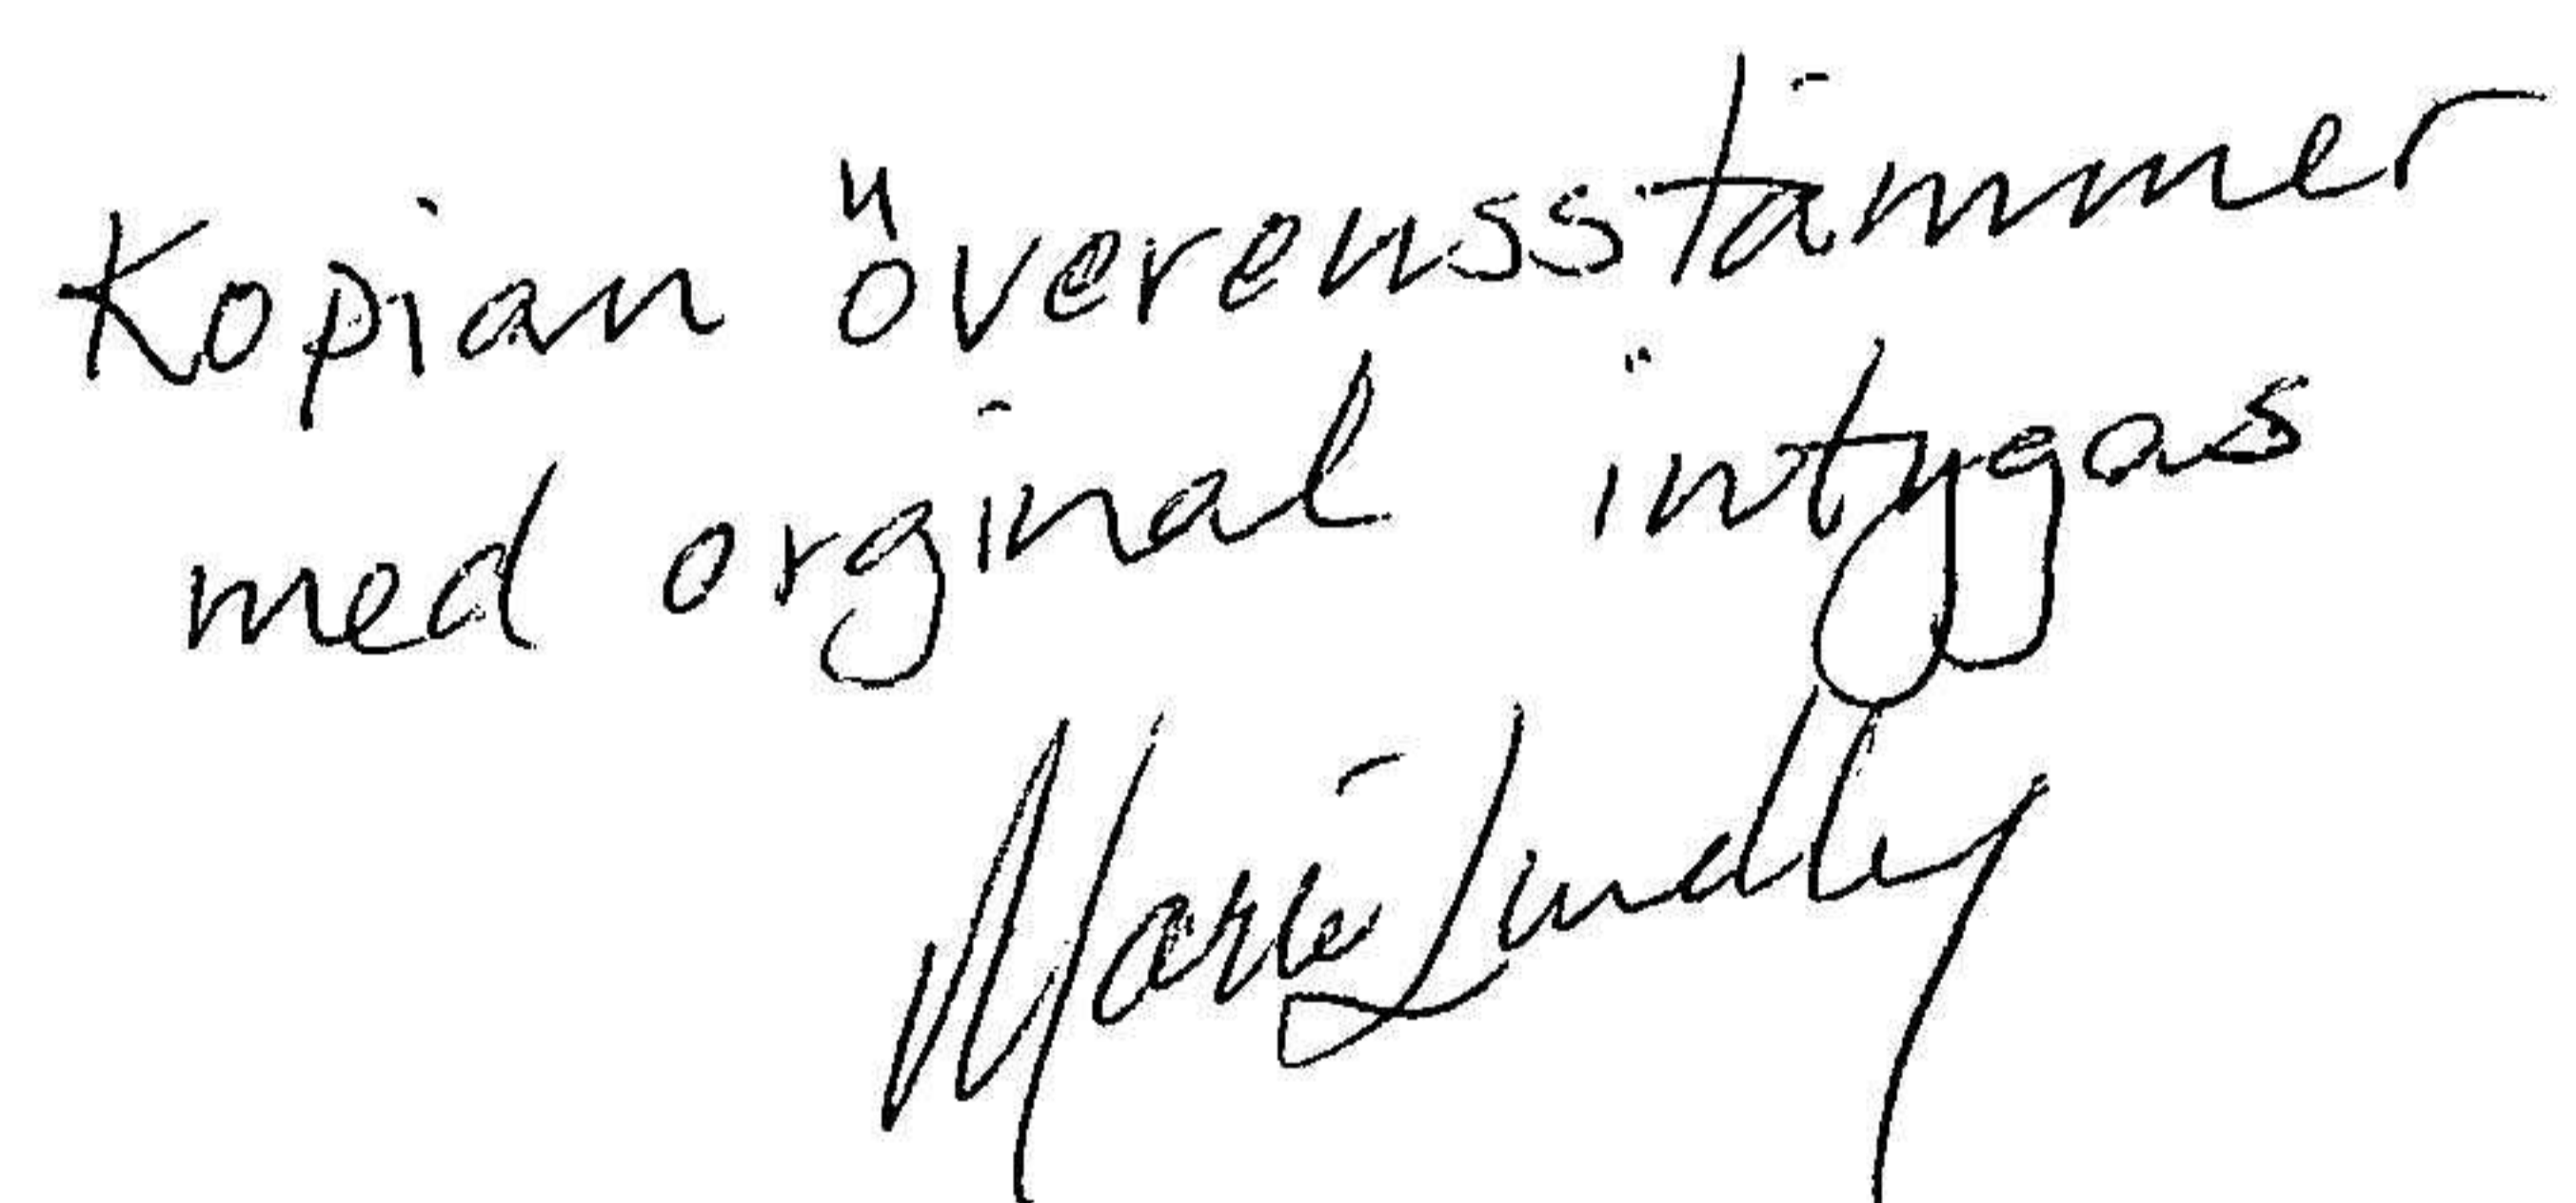 Kopian överensstämmer
med orginal intygas
Marie